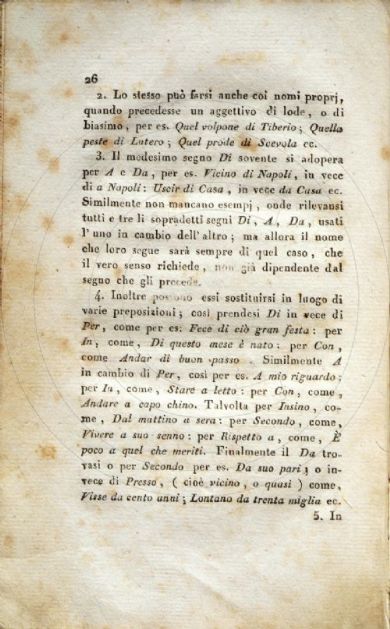 26
2. Lo stesso può farsi anche coi nomi proprj,
quando precedesse un aggettivo di lode, o di
biasimo, per es. Quel volpone di Tiberio; Quella
peste di Lutero; Quel prode di Scevola ec.
3. Il medesimo segno Di sovente si adopera
per A e Da, per es. Vicino di Napoli, in vece
di a Napoli: Uscir di Casa, in vece da Casa ec.
Similmente non mancano esempj, onde rilevansi
tutti e tre li sopradetti segni Di, A, Da, usati
l'uno in cambio dell'altro; ma allora il nome
che loro segue sarà sempre di quel caso, che
il vero senso richiede, non già dipendente dal
segno che gli precede.
4. Inoltre possono essi sostituirsi in luogo di
varie preposizioni; così prendesi Di in vece di
Per, come per es: Fece di ciò gran festa: per
In, come, Di questo mese è nato: per Con,
come Andar di buon passo. Similmente A
in cambio di Per, così per es. A mio riguardo:
per In, come, Stare a letto: per Con, come,
Andare a capo chino. Talvolta per Insino, co-
me, Dal mattino a sera: per Secondo, come,
Vivere a suo senno: per Rispetto a, come, È
poco a quel che meriti. Finalmente il Da tro-
vasi o per Secondo per es. Da suo pari; o in-
vece di Presso, (cioè vicino, o quasi) come,
Visse da cento anni; Lontano da trenta miglia ec.
5. In